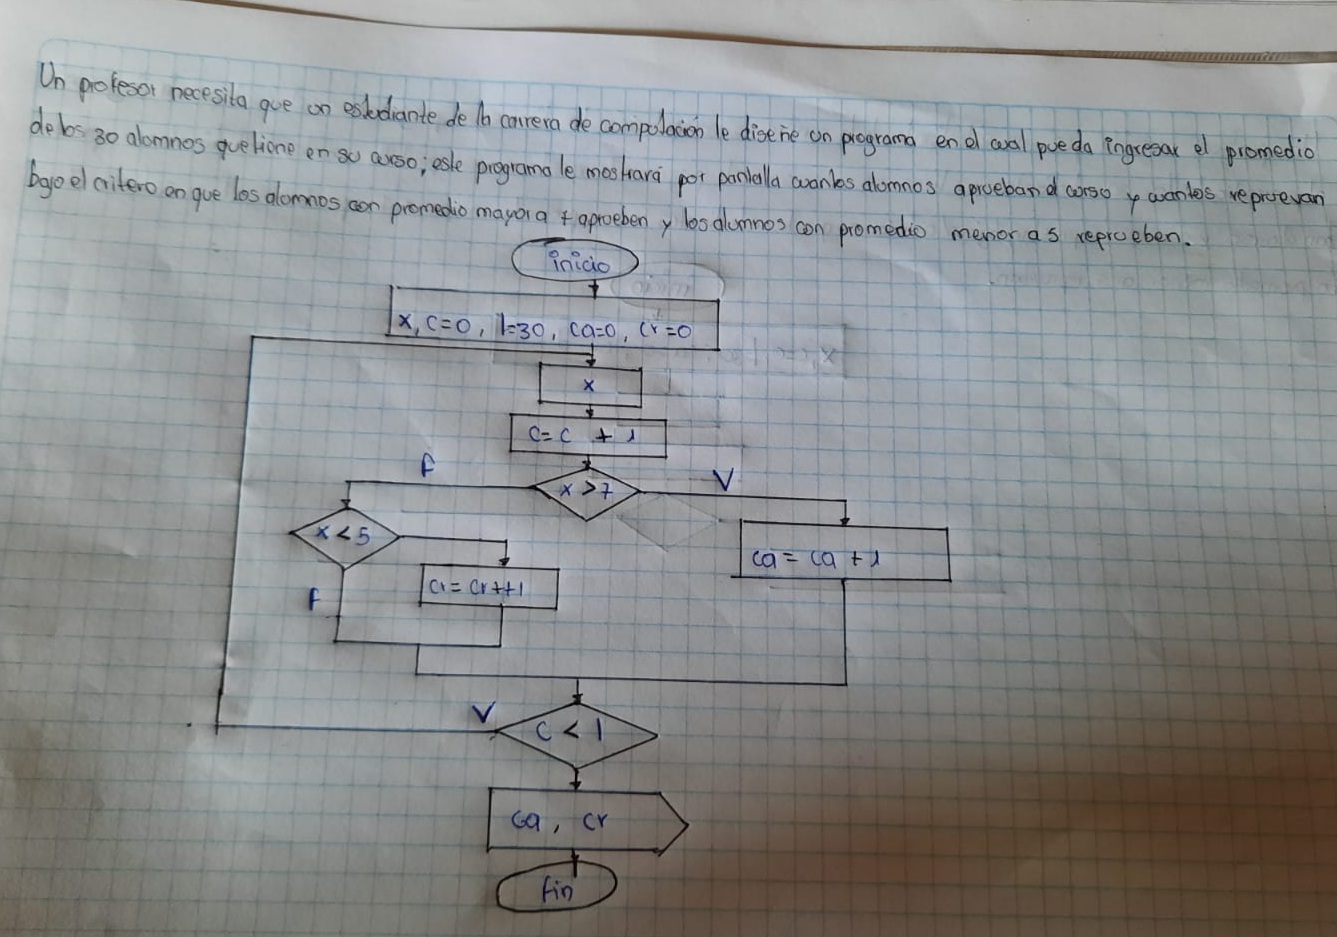 Un profesor necesita que un estudiante de la carrera de computación le diseñe un programa en el cual pueda ingresar el promedio
de los 30 alumnos que tiene en su curso; este programa le mostrará por pantalla cuantos alumnos aprueban el curso y cuantos repruevan
bajo el critero en que los alumnos con promedio mayor a 7 aprueben y los alumnos con promedio menor a 5 reprueben.
inicio
x, c=0, l=30, ca=0, cr=0
x
c= c + 1
f
x > 7
V
x < 5
ca = ca + 1
cr = cr++1
f
V
c < l
ca, cr
fin